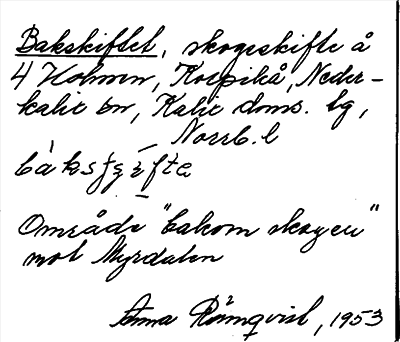 Bakskiftet, skogsskifte å
4 Holmen, Korpikå, Neder-
kalix sn, Kalix doms. bg,
Norrb. l
Område "bakom skogen"
mot Myrdalen
Anna Rönnqvist, 1953